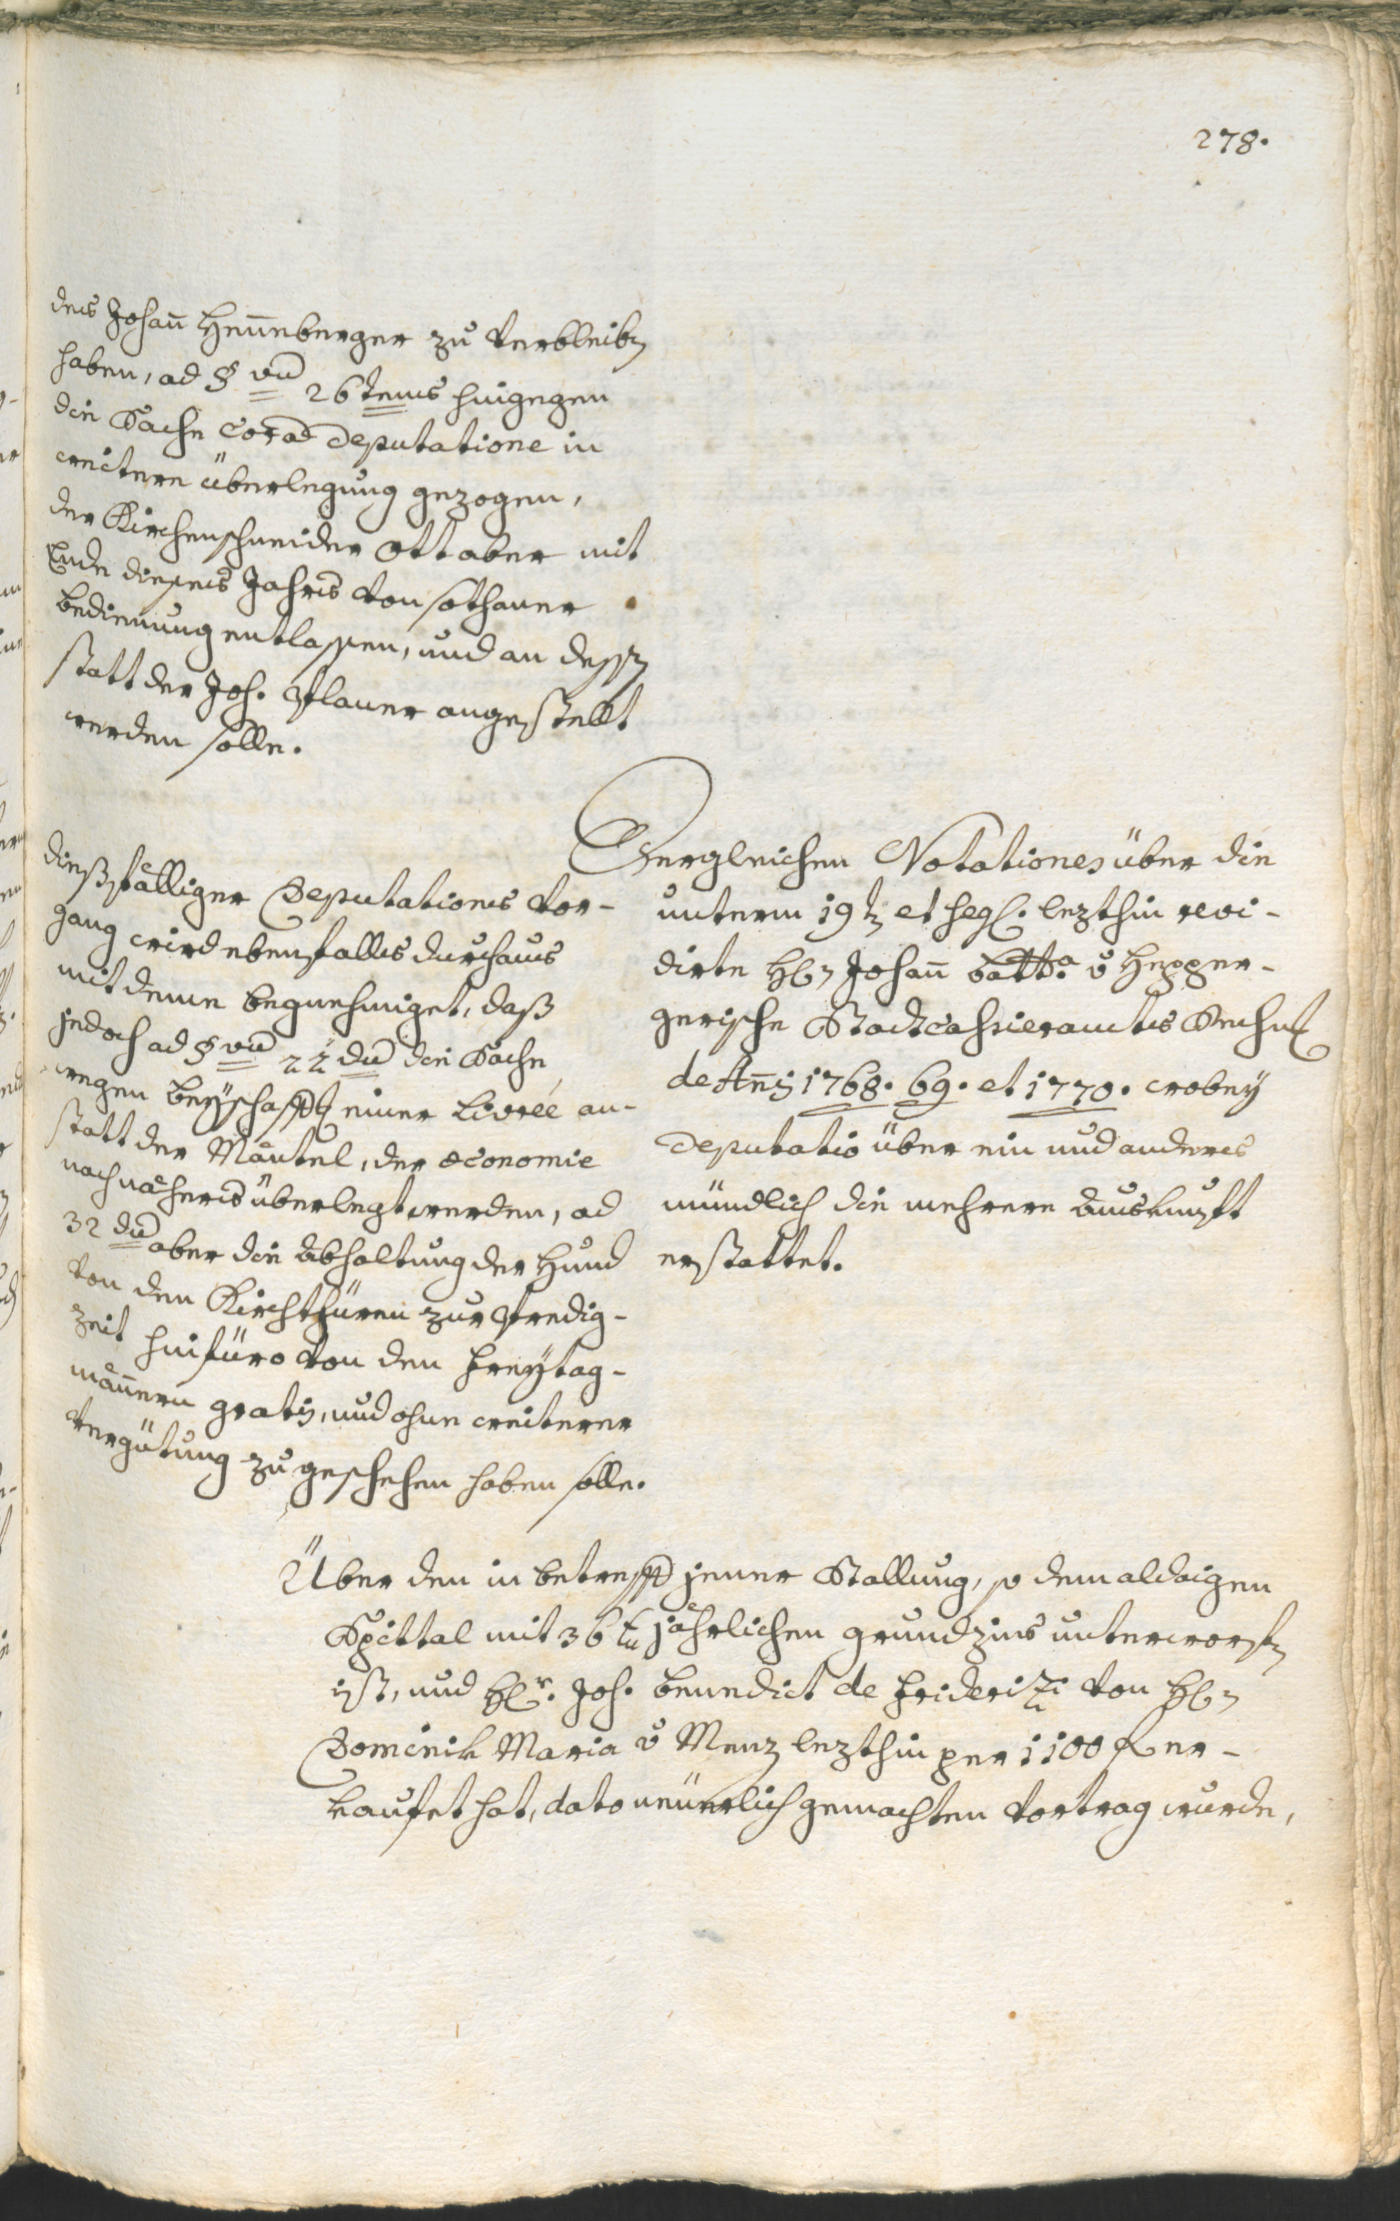 278.
des Johañ Heñeberger zu verbleibⁿ
haben, ad §vū 26 tems hingegen
die Sache corā Deputatione in
weitere überlegung gezogen,
der Kirchenschneider Ott aber mit
Ende dieses Jahrs von sothaner
bedienung entlassen, und an dessⁿ
statt der Joh. Planer angestellt
werden solle.
dießfälliger Deputations vor-
gang wird ebenfalls durchaus
mit deme begnehmiget, daß
jedoch ad §vū 22 dū die Sache
wegen beÿschaffḡ einer Livrèé an-
statt der Mäntel, der œconomie
nach nähers überlegt werden, ad
32 dū aber die abhaltung der Hund
von den Kirchthüren zur Predig-
zeit hinfüro von den Freÿtag-
mäñern gratis, und ohne weiterer
vergütung zu geschehen haben solle.
Dergleichen Notationes über die
unterm 19t et seq. lezthin revi-
dirte Hl. Johañ Batta. v Hepper-
gerische Stadtcassieramts Rechn
de Añis 1768. 69. et 1770. wobeÿ
Deputatio über ein und anderes
mündlich die mehrere auskunft
erstattet.
Über den in betreff jener Stallung, so dem aldaigen
Spittal mit 36 xr jährlichen grundzins unterworfⁿ
ist, und Hr. Joh. Benedict de Friderizi von Hl.
Dominik Maria v Menz lezthin per 1100 f er-
kaufet hat, dato neüerlich gemachten vortrag wurde,